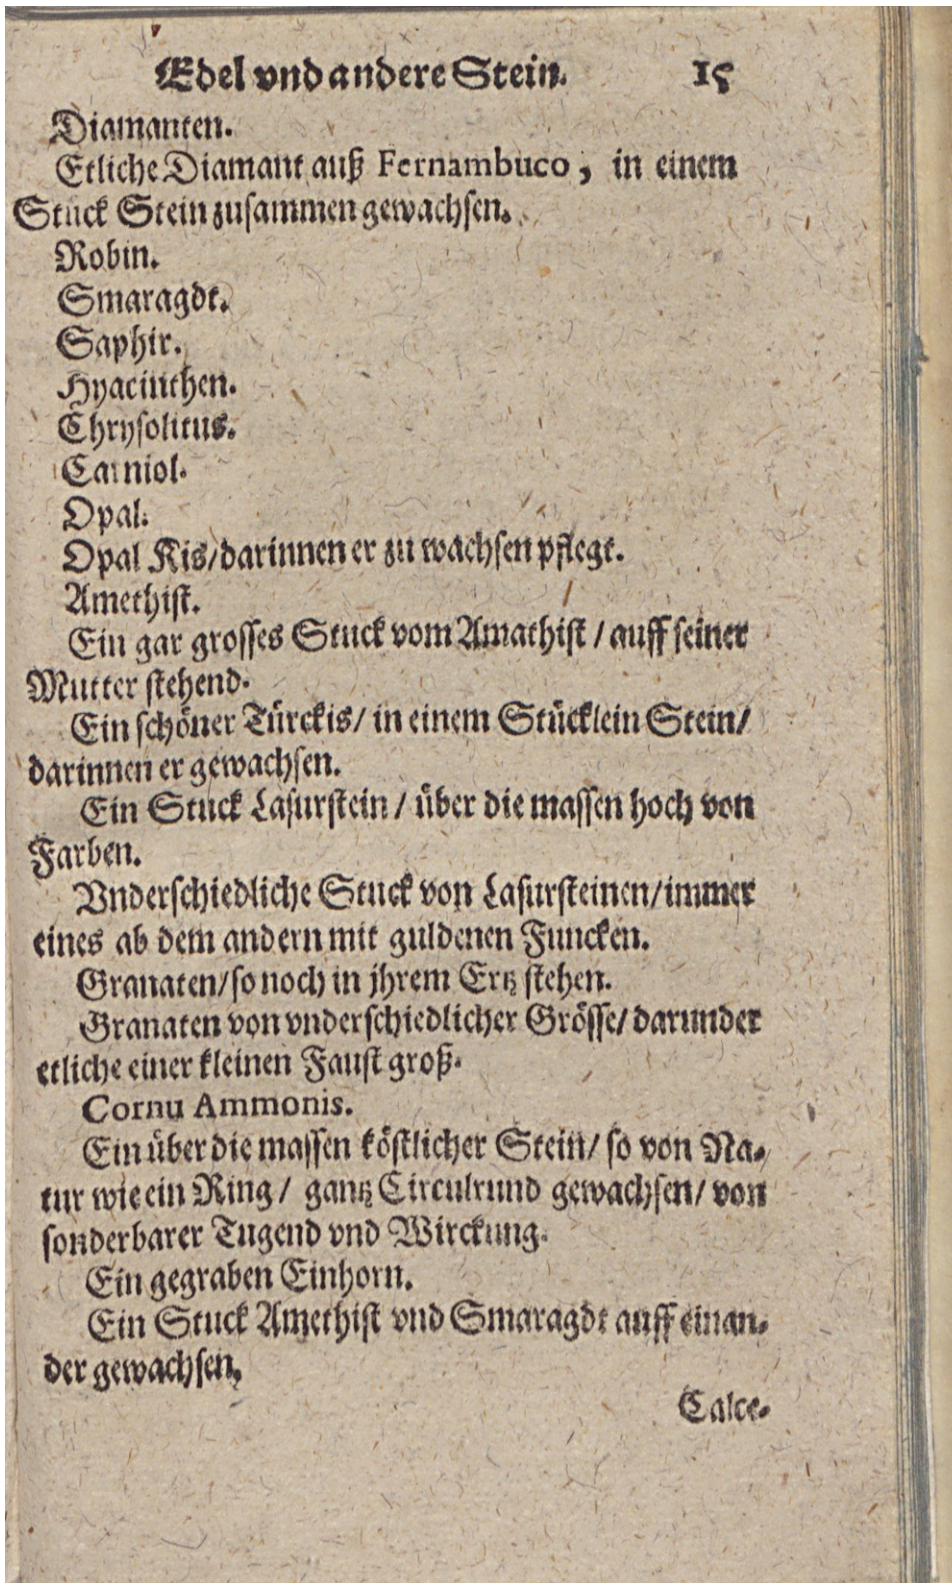 Edel vnd andere Stein. 15
Diamanten.
Etliche Diamant auß Fernambuco, in einem
Stuck Stein zusammen gewachsen.
Robin.
Smaragdt.
Saphir.
Hyacinthen.
Chrysolitus.
Carniol.
Opal.
Opal Kis/darinnen er zu wachsen pflegt.
Amethist.
Ein gar grosses Stuck vom Amathist / auff seiner
Mutter stehend.
Ein schöner Türckis/ in einem Stücklein Stein/
darinnen er gewachsen.
Ein Stuck Lasurstein / über die massen hoch von
Farben.
Vnderschiedliche Stuck von Lasursteinen/immer
eines ab dem andern mit guldenen Funcken.
Granaten/so noch in jhrem Ertz stehen.
Granaten von vnderschiedlicher Grösse/ darunder
etliche einer kleinen Faust groß.
Cornu Ammonis.
Ein über die massen köstlicher Stein/ so von Na-
tur wie ein Ring / gantz Circulrund gewachsen/ von
sonderbarer Tugend vnd Wirckung.
Ein gegraben Einhorn.
Ein Stuck Amethist vnd Smaragdt auff einan-
der gewachsen.
Calce-